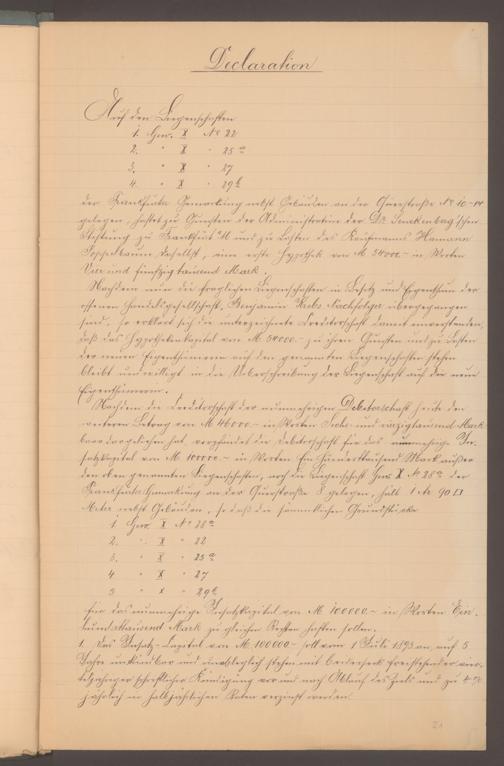 Declaration
Auf den Liegenschaften
1. Gew. X No 22
2. " X " 25 a
3. " X " 27
4. " X " 29 b
der Frankfurter Gemarkung nebst Gebäuden an der Querstraße No 10-14
gelegen, haftet zu Gunsten der Administration der Dr. Senckenberg'schen
Stiftung zu Frankfurt a/M und zu Lasten des Kaufmanns Hermann
daselbst, eine erste Hypothek von M 54000.- in Worten
Vier und fünfzig tausend Mark.
Nachdem nun die fraglichen Liegenschaften in Besitz und Eigenthum der
offenen Handelsgesellschaft, Benjamin Krebs Nachfolger übergegangen
sind, so erklärt sich die unterzeichnete Creditorschaft damit einverstanden,
daß das Hypothekenkapital von M 54000.- zu ihren Gunsten und zu Lasten
der neuen Eigenthümerin auf den genannten Liegenschaften stehen
bleibt und willigt in die Ueberschreibung der Liegenschaft auf die neue
Eigenthümerin.
Nachdem die Creditorschaft der nunmehrigen Debitorschaft heute den
weiteren Betrag von M 46000.- in Worten Sechs und vierzigtausend Mark
baar dargeliehen hat, verpfändet die Debitorschaft für das nunmehrige In-
satzkapital von M 100000.- in Worten Ein hunderttausend Mark außer
den oben genannten Liegenschaften, noch die Liegenschaft Gew. X No 28 a der
Frankfurter Gemarkung an der Querstraße 8 gelegen, hält 1 Ar 90 □
Meter nebst Gebäuden, so daß die sämmtlichen Grundstücke
1. Gew. X No 28 a
2. " X " 22
3. " X " 25 a
4. " X " 27
5 " X " 29 b
für das nunmehrige Insatzkapital von M 100000.- in Worten Ein-
hunderttausend Mark zu gleichen Rechten haften sollen.
1. Das Insatz-Capital von M. 100000.- soll vom 1 Juli 1893 an, auf 5
Jahre unkündbar und unablöslich stehen mit beiderseits freistehender
schriftlicher Kündigung vor und nach Ablauf des Ziels und zu 4 %
jährlich in halbjährlichen Raten verzinst werden.